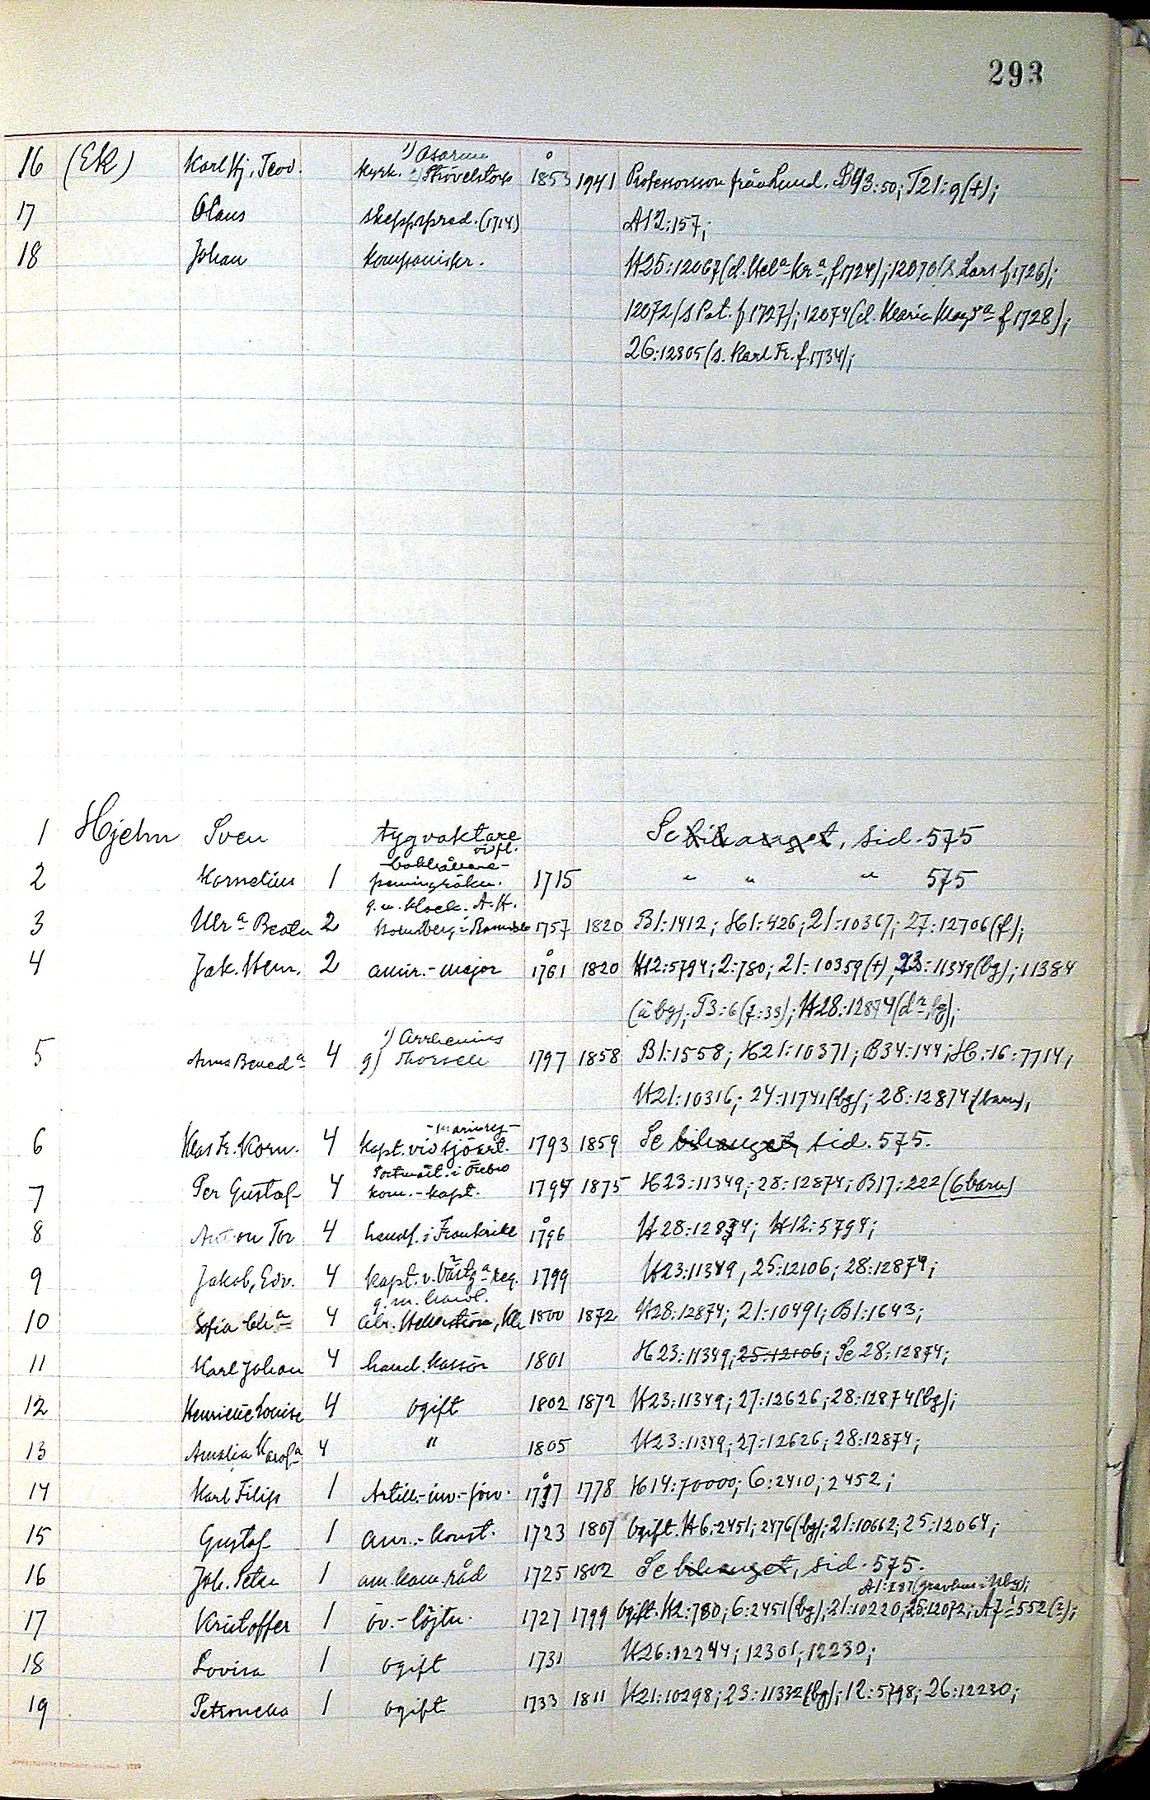 293
1) Asarum
16 (Ek) Karl Hj. Teod. kyrk. 2) Stövelstorp 1853 1941 Professorsson från Lund. B43:50; T21:9(+);
17 Olaus skeppspred. (1714) A12:157;
18 Johan kompaniskr. H25:12067(d. Hel:a Kr:a, f 1724); 12070(s. Lars f 1726);
12072(s Pet. f 1727); 12074(d. Maria Marg:a f 1728);
26:12305(s. Karl Fr. f. 1734);
1 Hjelm Sven tygvaktare Se bihanget, sid. 575
öfl.
bokhållare-
2 Kornelius 1 penningräkn. 1715 " " " 575
g. m. klock. A. H.
3 Ulr:a Beata 2 1757 1820 B1:1412; H1:426; 21:10367; 27:12706(f);
4 Jak. Henr. 2 amir.-major 1761 1820 H12:5794; 2:780; 21:10359(+); 23:11349(bg); 11384
(å bg); T3:6(7:33); H28:12874(d:a, bg);
1) Arrhenius
5 Anna Bened:a 4 g) Thorsell 1797 1858 B1:1558; H21:10371; B34:144; H:16:7714;
H21:10316; 24:11741(bg); 28:12874(barn);
-marinreg-
6 Klas Fr. Korn. 4 kapt. vid sjöart. 1793 1859 Se bihanget, sid. 575.
Postmäst. i Örebro
7 Per Gustaf 4 kom.-kapt. 1794 1875 H23:11349; 28:12874; B17:222(6 barn)
8 Anton Tor 4 handl. i Frankrike 1796 H28:12874; H12:5794;
9 Jakob, Edv. 4 kapt. v. Västg:a reg. 1799 H23:11349, 25:12106; 28:12874;
g. m. handl.
10 Sofia Ch:a 4 Abr. Hellström, 1800 1872 H28:12874; 21:10491; B1:1643;
11 Karl Johan 4 hand. kassör 1801 H23:11349; 25:12106; Se 28:12874;
12 Henriette Louise 4 ogift 1802 1872 H23:11349; 27:12626; 28:12874(bg);
13 Amalia Karol:a 4 " 1805 H23:11349; 27:12626; 28:12874;
14 Karl Filip 1 Artill.-inv.-förv. 1717 1778 H14:70000; 6:2410; 2452;
15 Gustaf 1 amr.-konst. 1723 1807 Ogift. H6:2451; 2476(bg); 21:10662; 25:12064;
16 Joh. Peter 1 am. kam. råd 1725 1802 Se bihanget, sid. 575.
A1:287(gravhus i Ubg);
17 Kristoffer 1 öv.-löjtn. 1727 1799 Ogift. H2:780; 6:2451(bg); 21:10220; 25:12072; A7:552(2);
18 Lovisa 1 ogift 1731 H26:12244; 12301; 12230;
19 Petronella 1 ogift 1733 1811 H21:10298; 23:11332(bg); 12:5798; 26:12230;